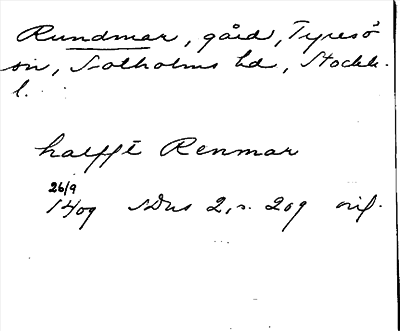 Rundmar, gård, Tyresö
sn, Sotholms hd, Stockh.
l.
halfft Renmar
26/9
1409 SDns 2, s. 209 orig.